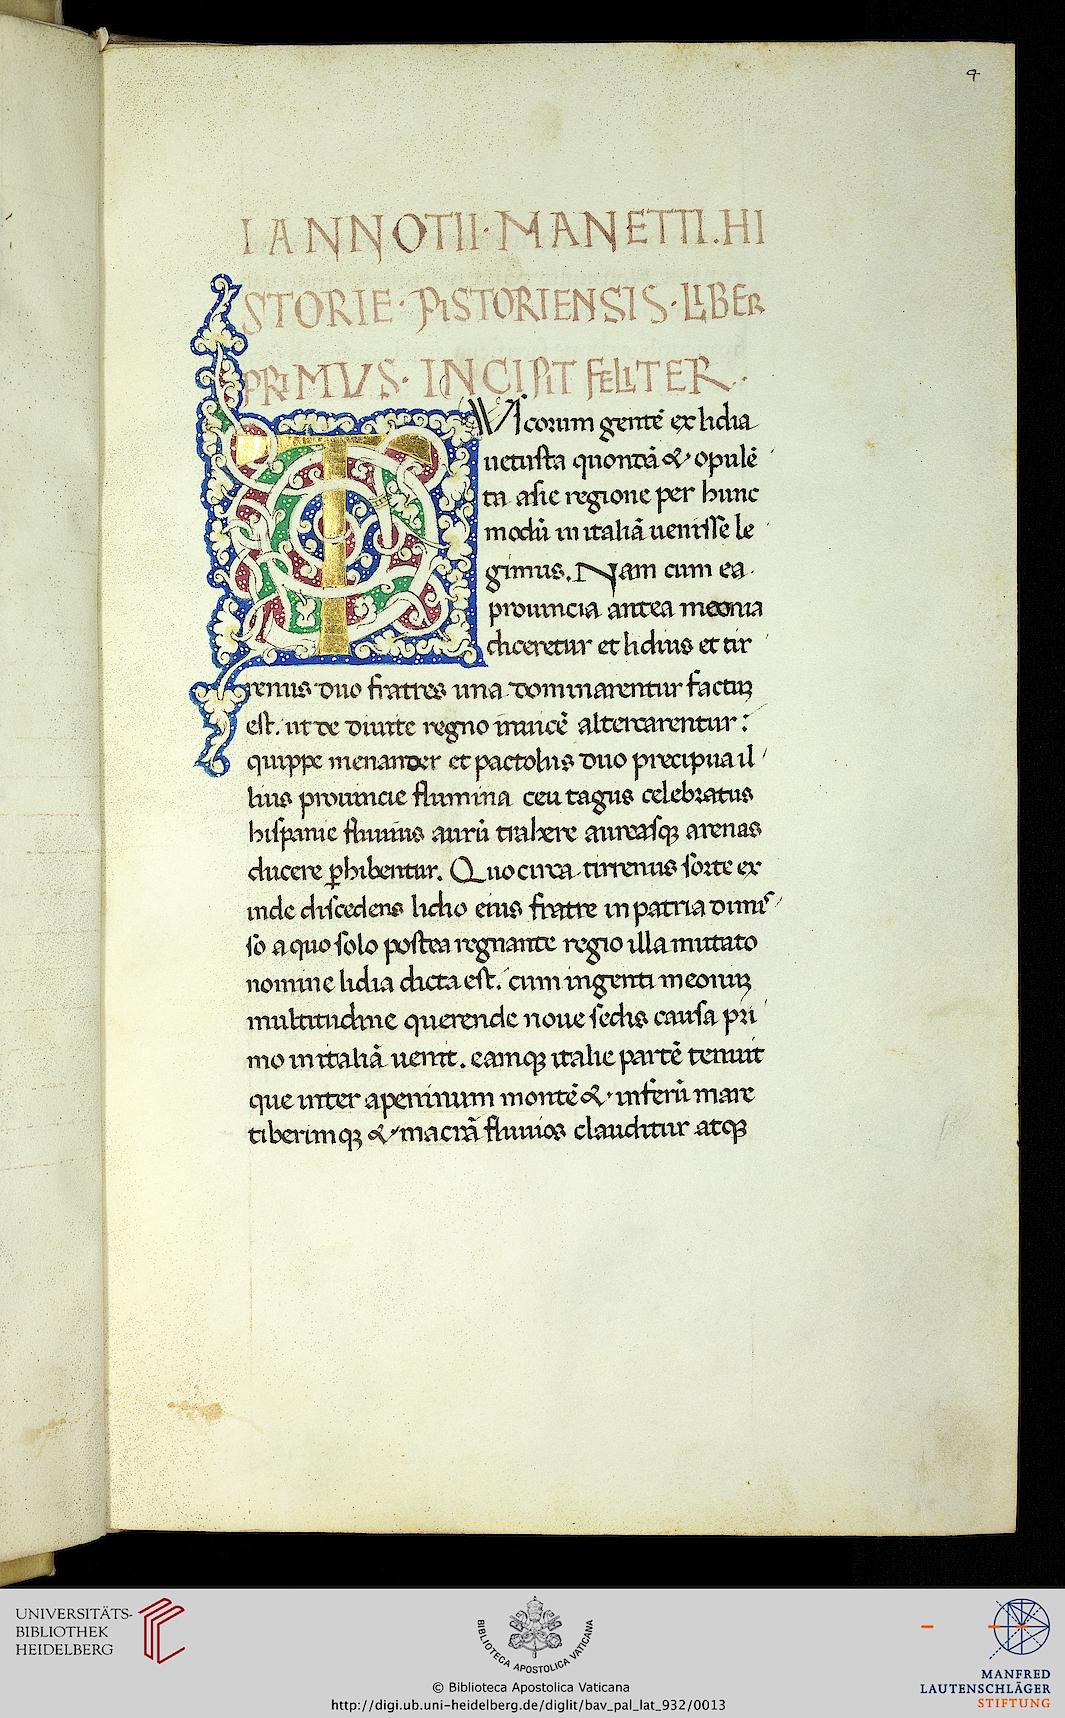 9
IANNOTII·MANETTI.HI
STORIE·PISTORIENSIS·LIBER
PRIMVS·INCIPIT FELITER·
TVScorum gentē ex lidia
uetusta quondā & opulē
ta asie regione per hunc
modū in italiā uenisse le
gimus. Nam cum ea
prouincia antea meonia
diceretur et lidius et tir
renus duo fratres una dominarentur factuꝫ
est. ut de diuite regno inuicē altercarentur:
quippe menander et pactolus duo precipua il
lius prouincie flumina ceu tagus celebratus
hispanie fluuius aurū trahere aureasqꝫ arenas
ducere ꝑhibentur. Quocirca tirrenus sorte ex
inde discedens lidio eius fratre in patria dimis
so a quo solo postea regnante regio illa mutato
nomine lidia dicta est. cum ingenti meoniuꝫ
multitudine querende noue sedis causa pri
mo in italiā uenit. eamqꝫ italie partē tenuit
que inter apeninum montē & inferū mare
tiberimqꝫ & macrā fluuios clauditur atqꝫ
UNIVERSITÄTS-
BIBLIOTHEK
HEIDELBERG
BIBLIOTECA APOSTOLICA VATICANA
© Biblioteca Apostolica Vaticana
http://digi.ub.uni-heidelberg.de/diglit/bav_pal_lat_932/0013
MANFRED
LAUTENSCHLÄGER
STIFTUNG